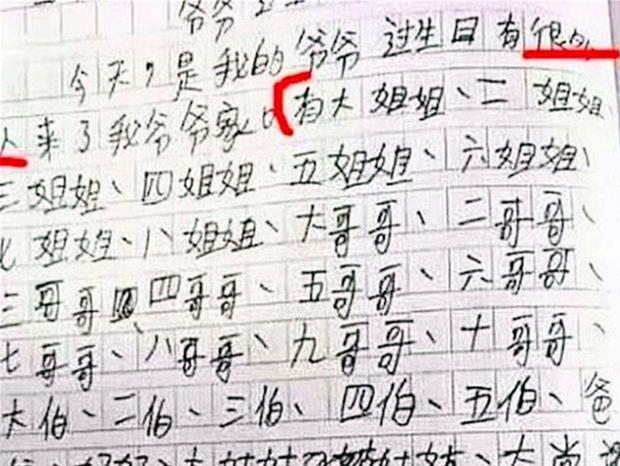 爷爷
今天，是我的爷爷过生日有很多
人来了我爷爷家，有大姐姐、二姐姐
三姐姐、四姐姐、五姐姐、六姐姐、
七姐姐、八姐姐、大哥哥、二哥哥、
三哥哥四哥哥、五哥哥、六哥哥、
七哥哥、八哥哥、九哥哥、十哥哥、
大伯、二伯、三伯、四伯、五伯、爸